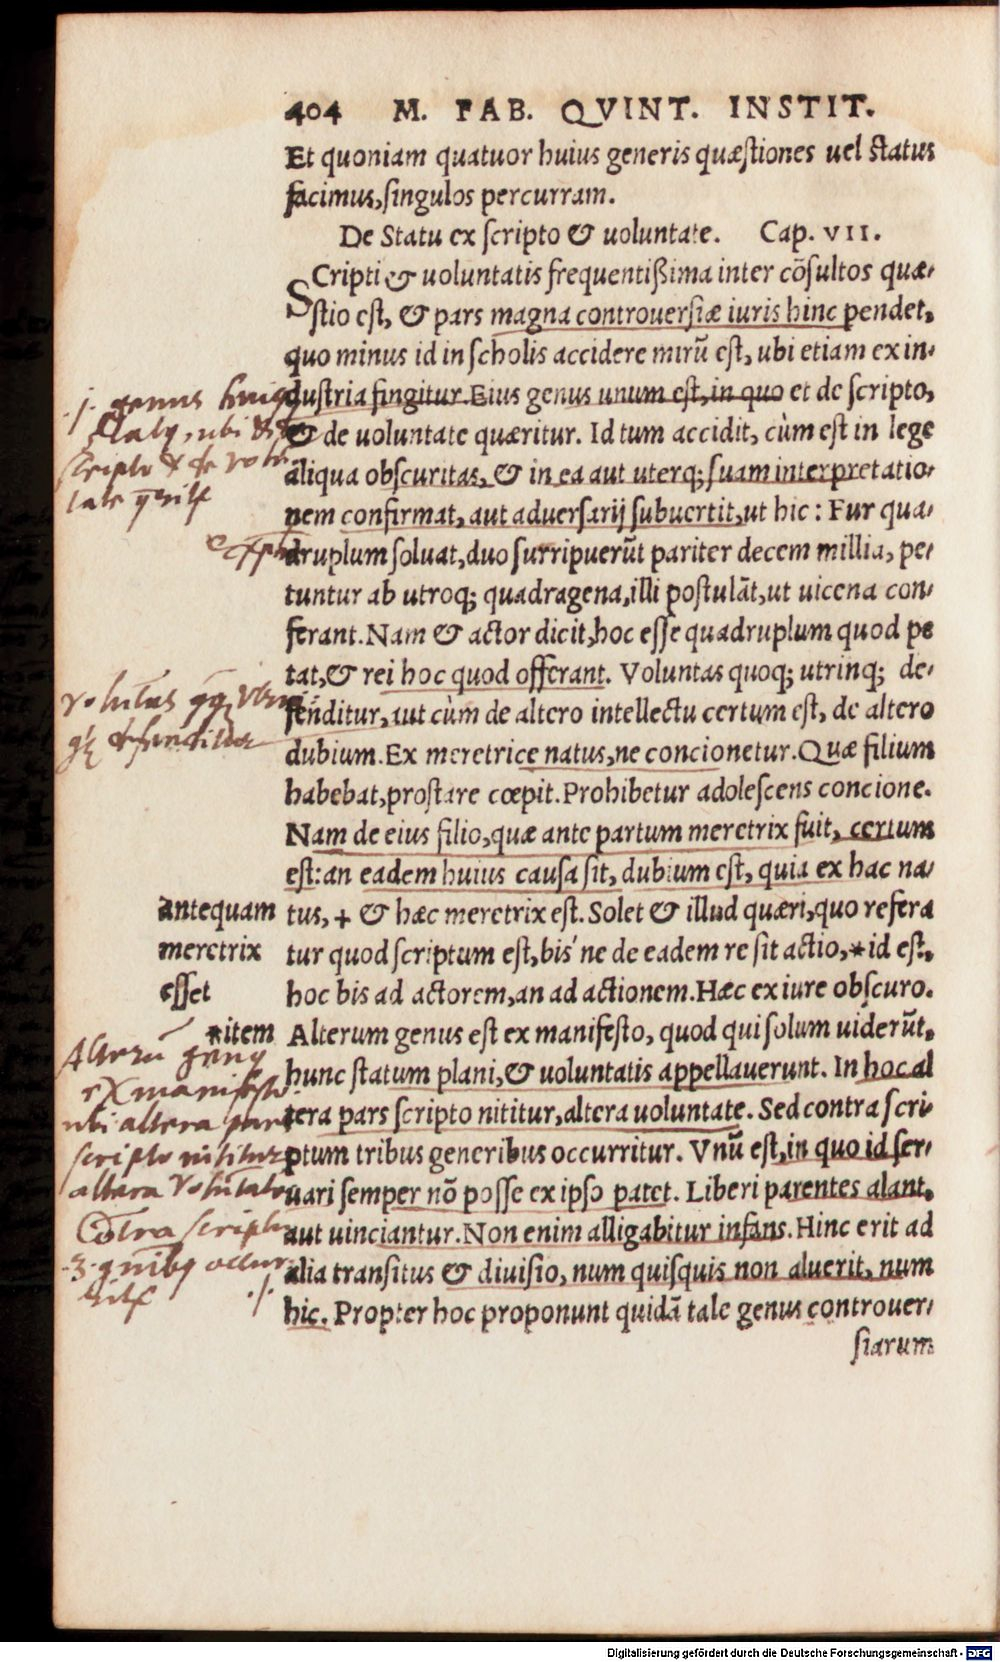 404 M. FAB. QVINT. INSTIT.
Et quoniam quatuor huius generis quæſtiones uel ſtatus
facimus, ſingulos percurram.
De Statu ex ſcripto & uoluntate. Cap. VII.
SCripti & uoluntatis frequentißima inter cōſultos quæ-
ſtio eſt, & pars magna controuerſiæ iuris hinc pendet,
quo minus id in ſcholis accidere mirū eſt, ubi etiam ex in-
duſtria fingitur. Eius genus unum eſt, in quo et de ſcripto,
& de uoluntate quæritur. Id tum accidit, cùm eſt in lege
aliqua obſcuritas, & in ea aut uterq; ſuam interpretatio-
nem confirmat, aut aduerſarij ſubuertit, ut hic: Fur qua-
druplum ſoluat, duo ſurripuerūt pariter decem millia, pe-
tuntur ab utroq; quadragena, illi poſtulāt, ut uicena con-
ferant. Nam & actor dicit, hoc eſſe quadruplum quod pe
tat, & rei hoc quod offerant. Voluntas quoq; utrinq; de-
fenditur, aut cùm de altero intellectu certum eſt, de altero
dubium. Ex meretrice natus, ne concionetur. Quæ filium
habebat, proſtare cœpit. Prohibetur adoleſcens concione.
Nam de eius filio, quæ ante partum meretrix fuit, certum
eſt: an eadem huius cauſa ſit, dubium eſt, quia ex hac na-
tus, + & hæc meretrix eſt. Solet & illud quæri, quo refera
tur quod ſcriptum eſt, bis´ne de eadem re ſit actio, * id eſt,
hoc bis ad actorem, an ad actionem. Hæc ex iure obſcuro.
Alterum genus eſt ex manifeſto, quod qui ſolum uiderūt,
hunc ſtatum plani, & uoluntatis appellauerunt. In hoc al
tera pars ſcripto nititur, altera uoluntate. Sed contra ſcri-
ptum tribus generibus occurritur. Vnū eſt, in quo id ſer-
uari ſemper nō poſſe ex ipſo patet. Liberi parentes alant,
aut uinciantur. Non enim alligabitur infans. Hinc erit ad
alia tranſitus & diuiſio, num quiſquis non aluerit, num
hic. Propter hoc proponunt quidā tale genus controuer-
ſiarum
.j. genus huius
ſtatus, ubi & de
ſcripto & de volū
tate
voluntas
antequam
meretrix
eſſet
*item
Alterū genus
ex manifeſto
ubi altera pars
ſcripto nititur
altera volūtate
Cōtra ſcriptū
.3. occur